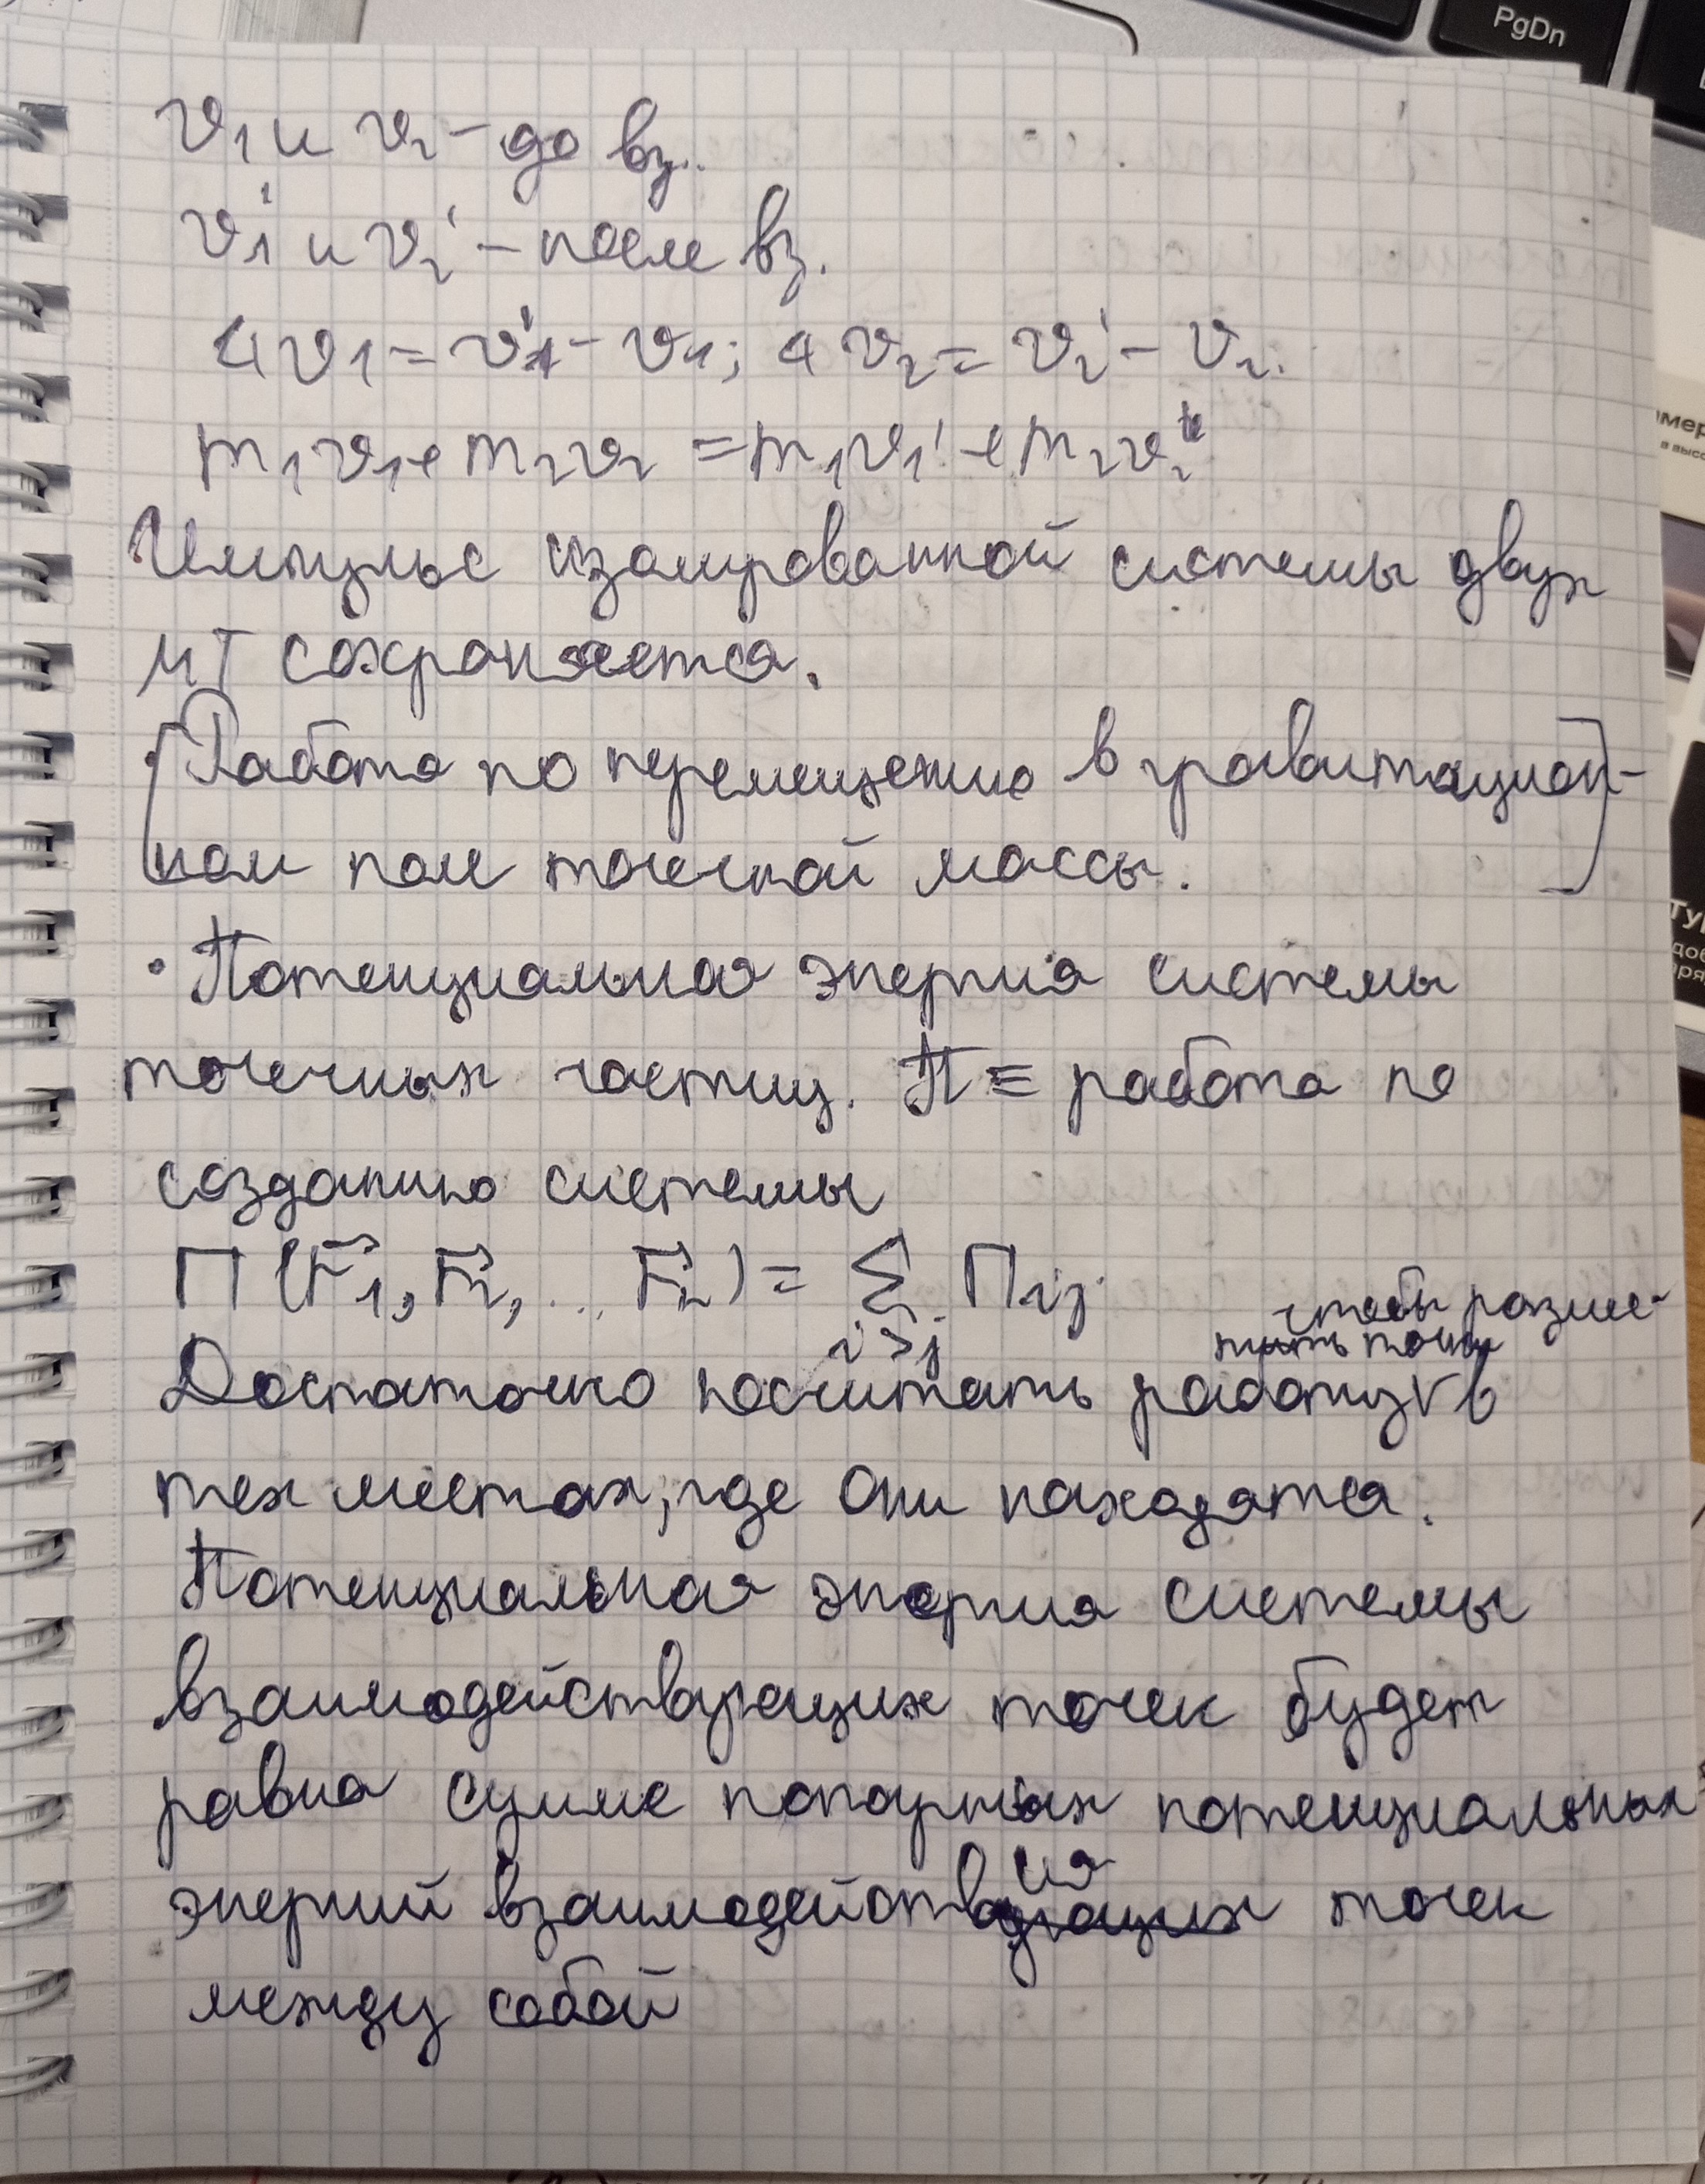 PgDn
v₁ и v₂ – до вз.
v₁' и v₂' – после вз.
Δv₁ = v₁' – v₁; Δv₂ = v₂' – v₂.
m₁v₁ + m₂v₂ = m₁v₁' + m₂v₂'
Импульс изолированной системы двух
МТ сохраняется.
[• Работа по перемещению в гравитацион-
ном поле точечной массы.]
• Потенциальная энергия системы
точечных частиц. П ≡ работа по
созданию системы
П (r⃗₁, r⃗₂, ... r⃗ₙ) = Σ Пᵢⱼ
i>j
чтобы разме-
тить точки
Достаточно посчитать работу √ в
тех местах, где они находятся.
Потенциальная энергия системы
взаимодействующих точек будет
равна сумме попарных потенциальных
энергий взаимодействия точек
между собой